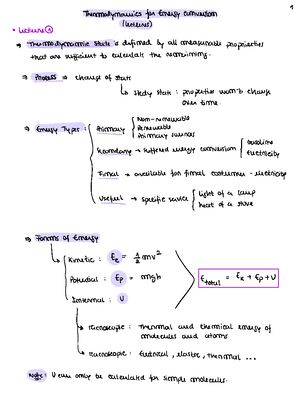 1
Thermodynamics for Energy Conversion
(Lectures)
• Lecture ①
⇒ Thermodynamic State is defined by all measurable properties
that are sufficient to calculate the remaining.
⇒ Process → change of state
↳ Stedy state : properties won't change
over time.
⇒ Energy Types :
Primary
Non-renewable
Renewable
Primary sources
Secondary → suffered energy conversion
Gasoline
Electricity
Final → available for final costumer - electricity
Useful → specific service
light of a lamp
heat of a stove
⇒ Forms of Energy
Kinetic : Ek = 1/2 mv²
Potential : Ep = mgh
Internal : U
E total = Ek + Ep + U
→ Microscopic : Thermal and chemical energy of
molecules and atoms
→ Macroscopic : Electrical, elastic, thermal ...
Note: U can only be calculated for simple molecules.